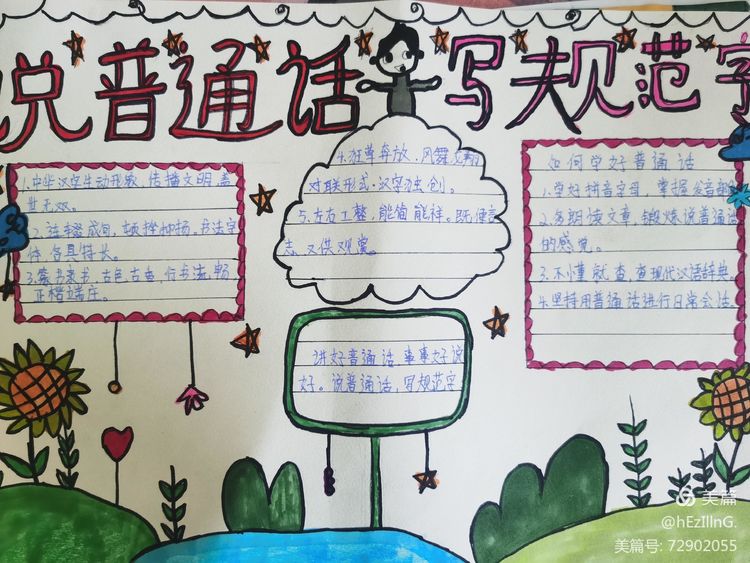 说普通话 写规范字
1.中华汉字生动形象,传播文明,盖
世无双。
2.连缀成句,顿挫抑扬。书法字
体,各具特长。
3.篆书隶书,古色古香,行书流畅,
正楷端庄。
4.狂草奔放,凤舞龙翔
对联形式,汉字独创。
5.左右工整,能简能祥。既便言
志,又供观赏。
讲好普通话,事事好说
好。说普通话,写规范字
如何学好普通话
1.学好拼音字母,掌握发音部
2.多朗读文章,锻炼说普通话
的感觉。
3.不懂就查,查现代汉语辞典。
4.坚持用普通话进行日常会话。
美篇
@hEzIllnG.
美篇号: 72902055